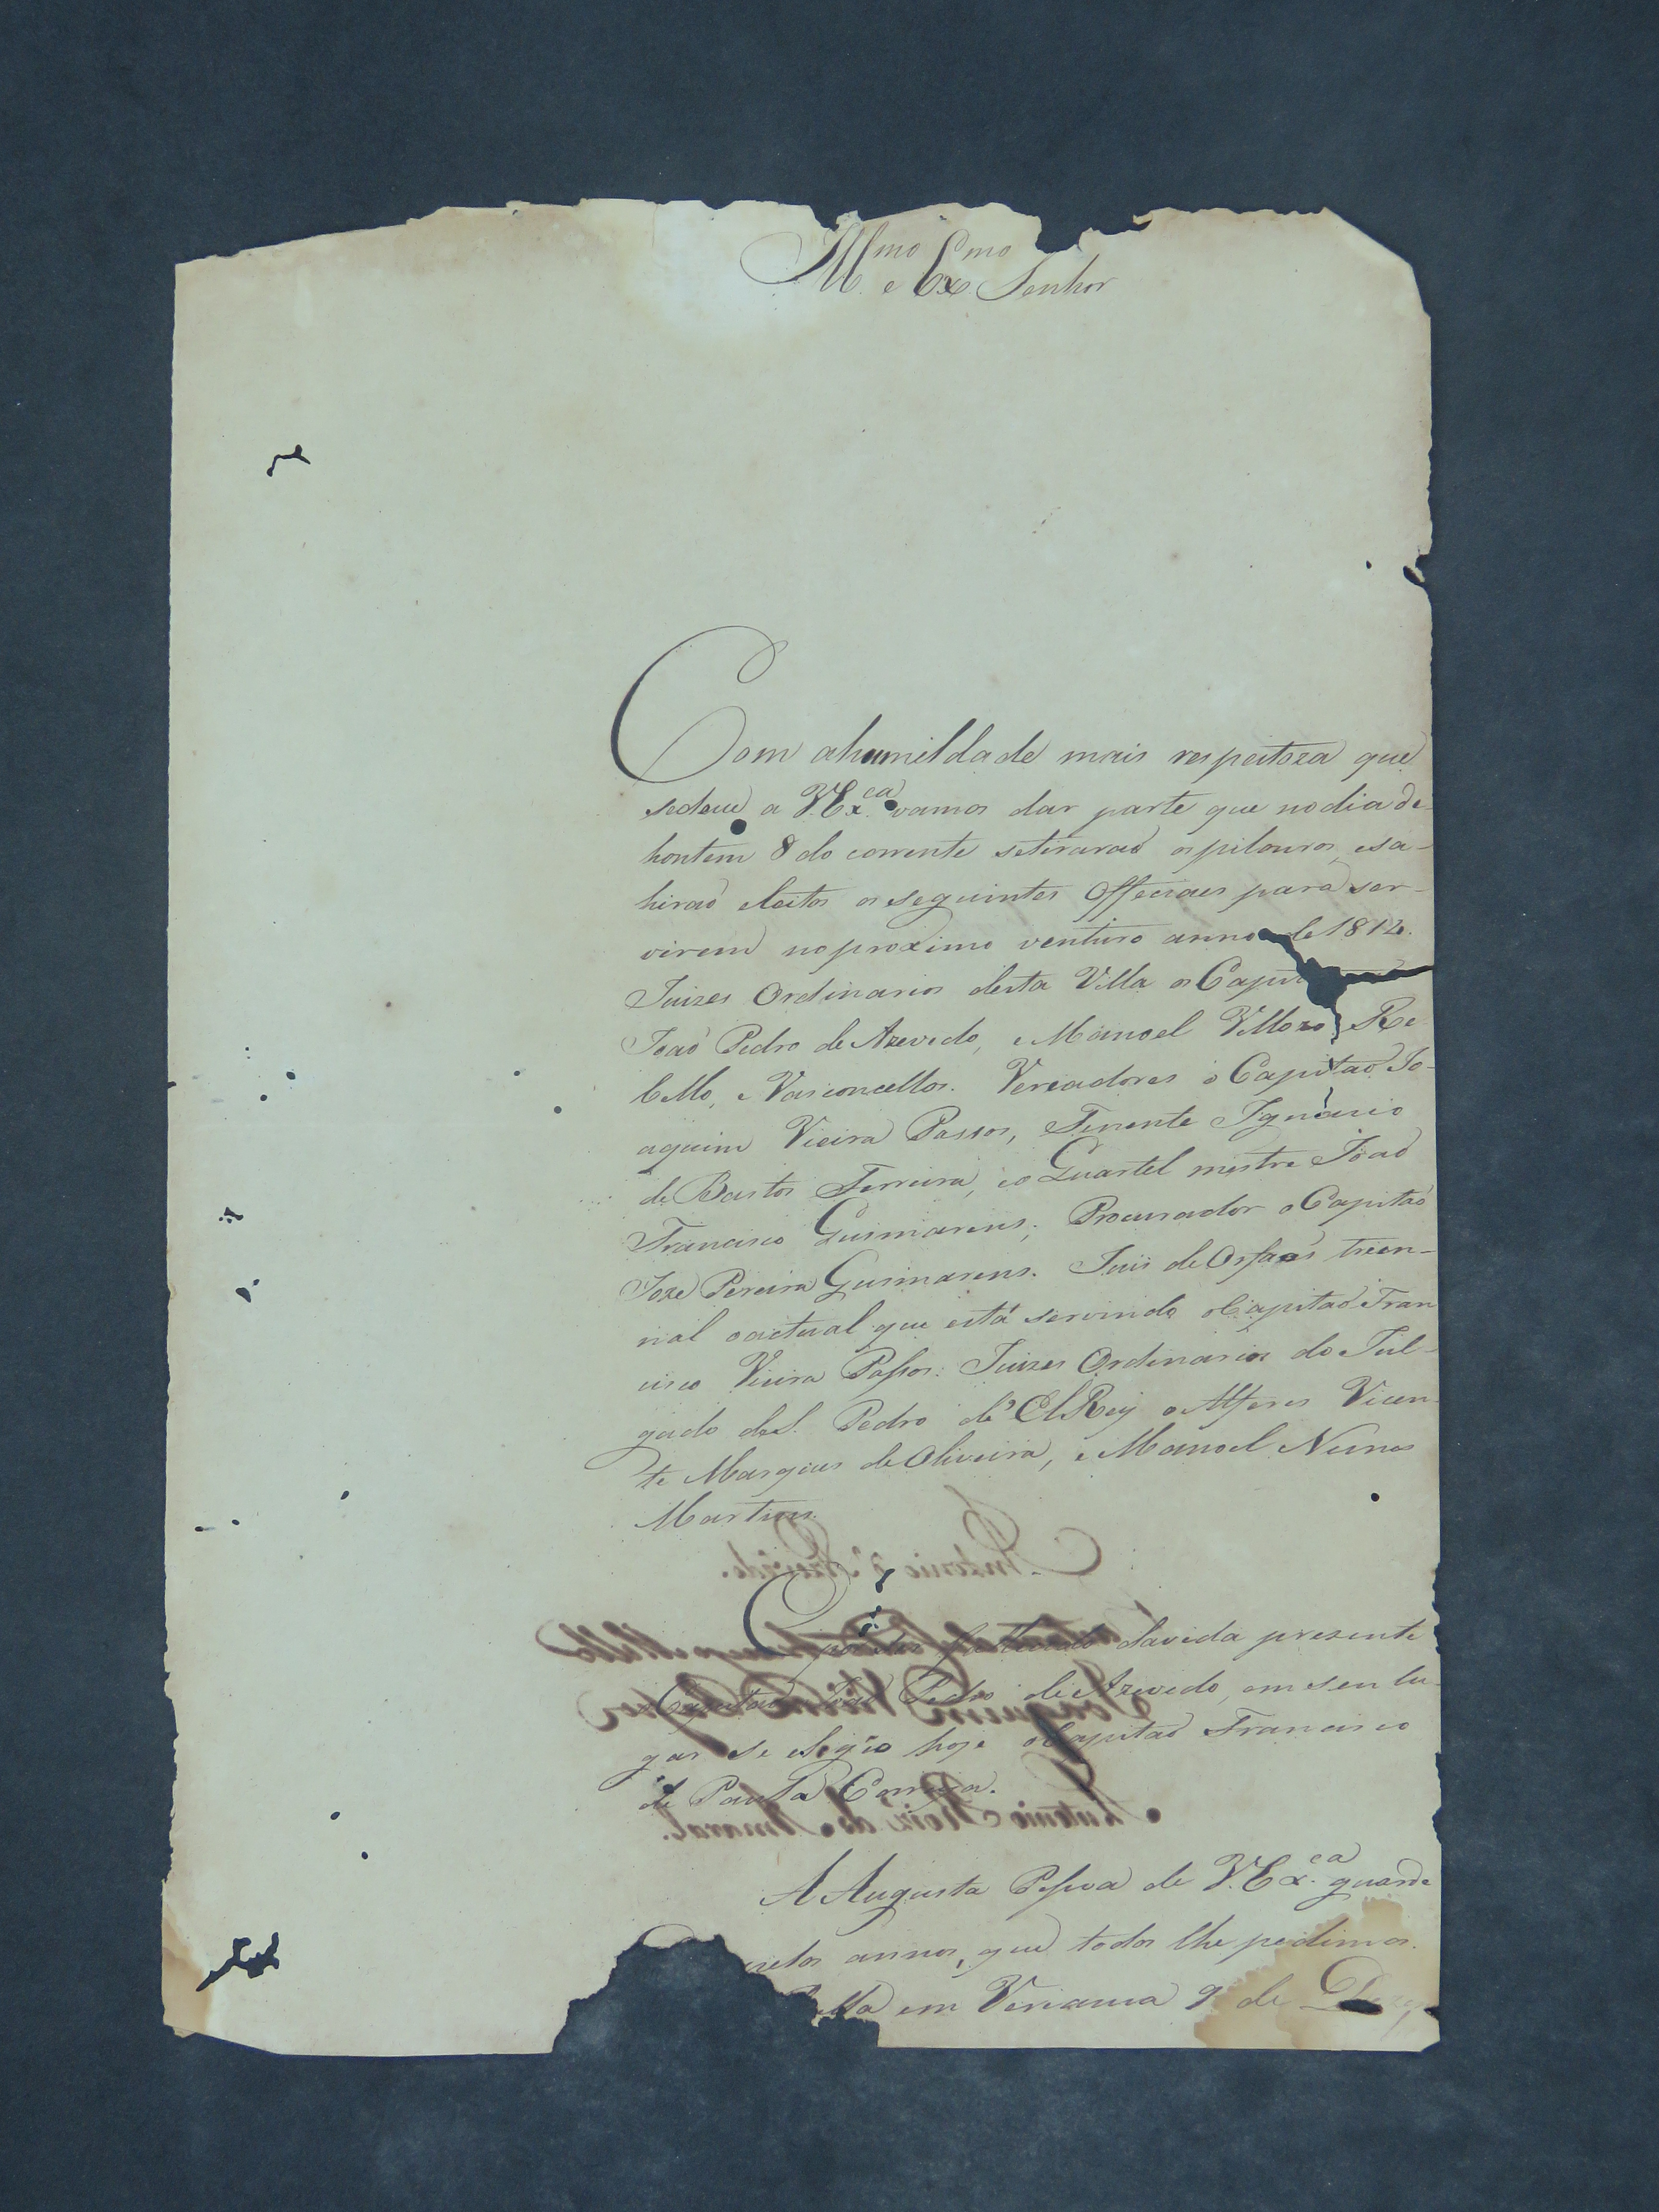 Ill.mo e Ex.mo Senhor
Com ahumildade mais respeitoza que
sedeve a V. Ex.ca vamos dar parte que nodia de
hontem 8 do corrente setirarao os pilouros, esa-
hirao eleitos os seguintes Officiaes para ser-
virem no proximo venturo anno de 1812.
Juizes Ordinarios desta Villa os
Joaõ Pedro de Azevedo, e Manoel Vellozo Re-
bello, e Vasconcellos. Vereadores o Capitaõ Jo-
aquim Vieira Passos, Tenente Ignacio
de Bastos Ferreira, eo Quartel mestre Joaõ
Francisco Guimarens; Procurador o Capitaõ
Joze Pereira Guimarens. Juis de Orfaos trien-
nal o actual que está servindo o Capitaõ Fran
cisco Vieira Passos. Juizes Ordinarios do Jul-
gado de S. Pedro d'El Rey o Alferes Vicen-
te Marques de Oliveira, e Manoel Nunes
Martins.
davida prezente
o Capitaõ Joaõ Pedro de Azevedo, em seu lu-
gar se elegio hoje o Capitaõ Francisco
de Paula Correya.
A Augusta Pessoa de V. Ex.ca guarde
annos, que todos lhe pedimos.
em Veriança 9 de